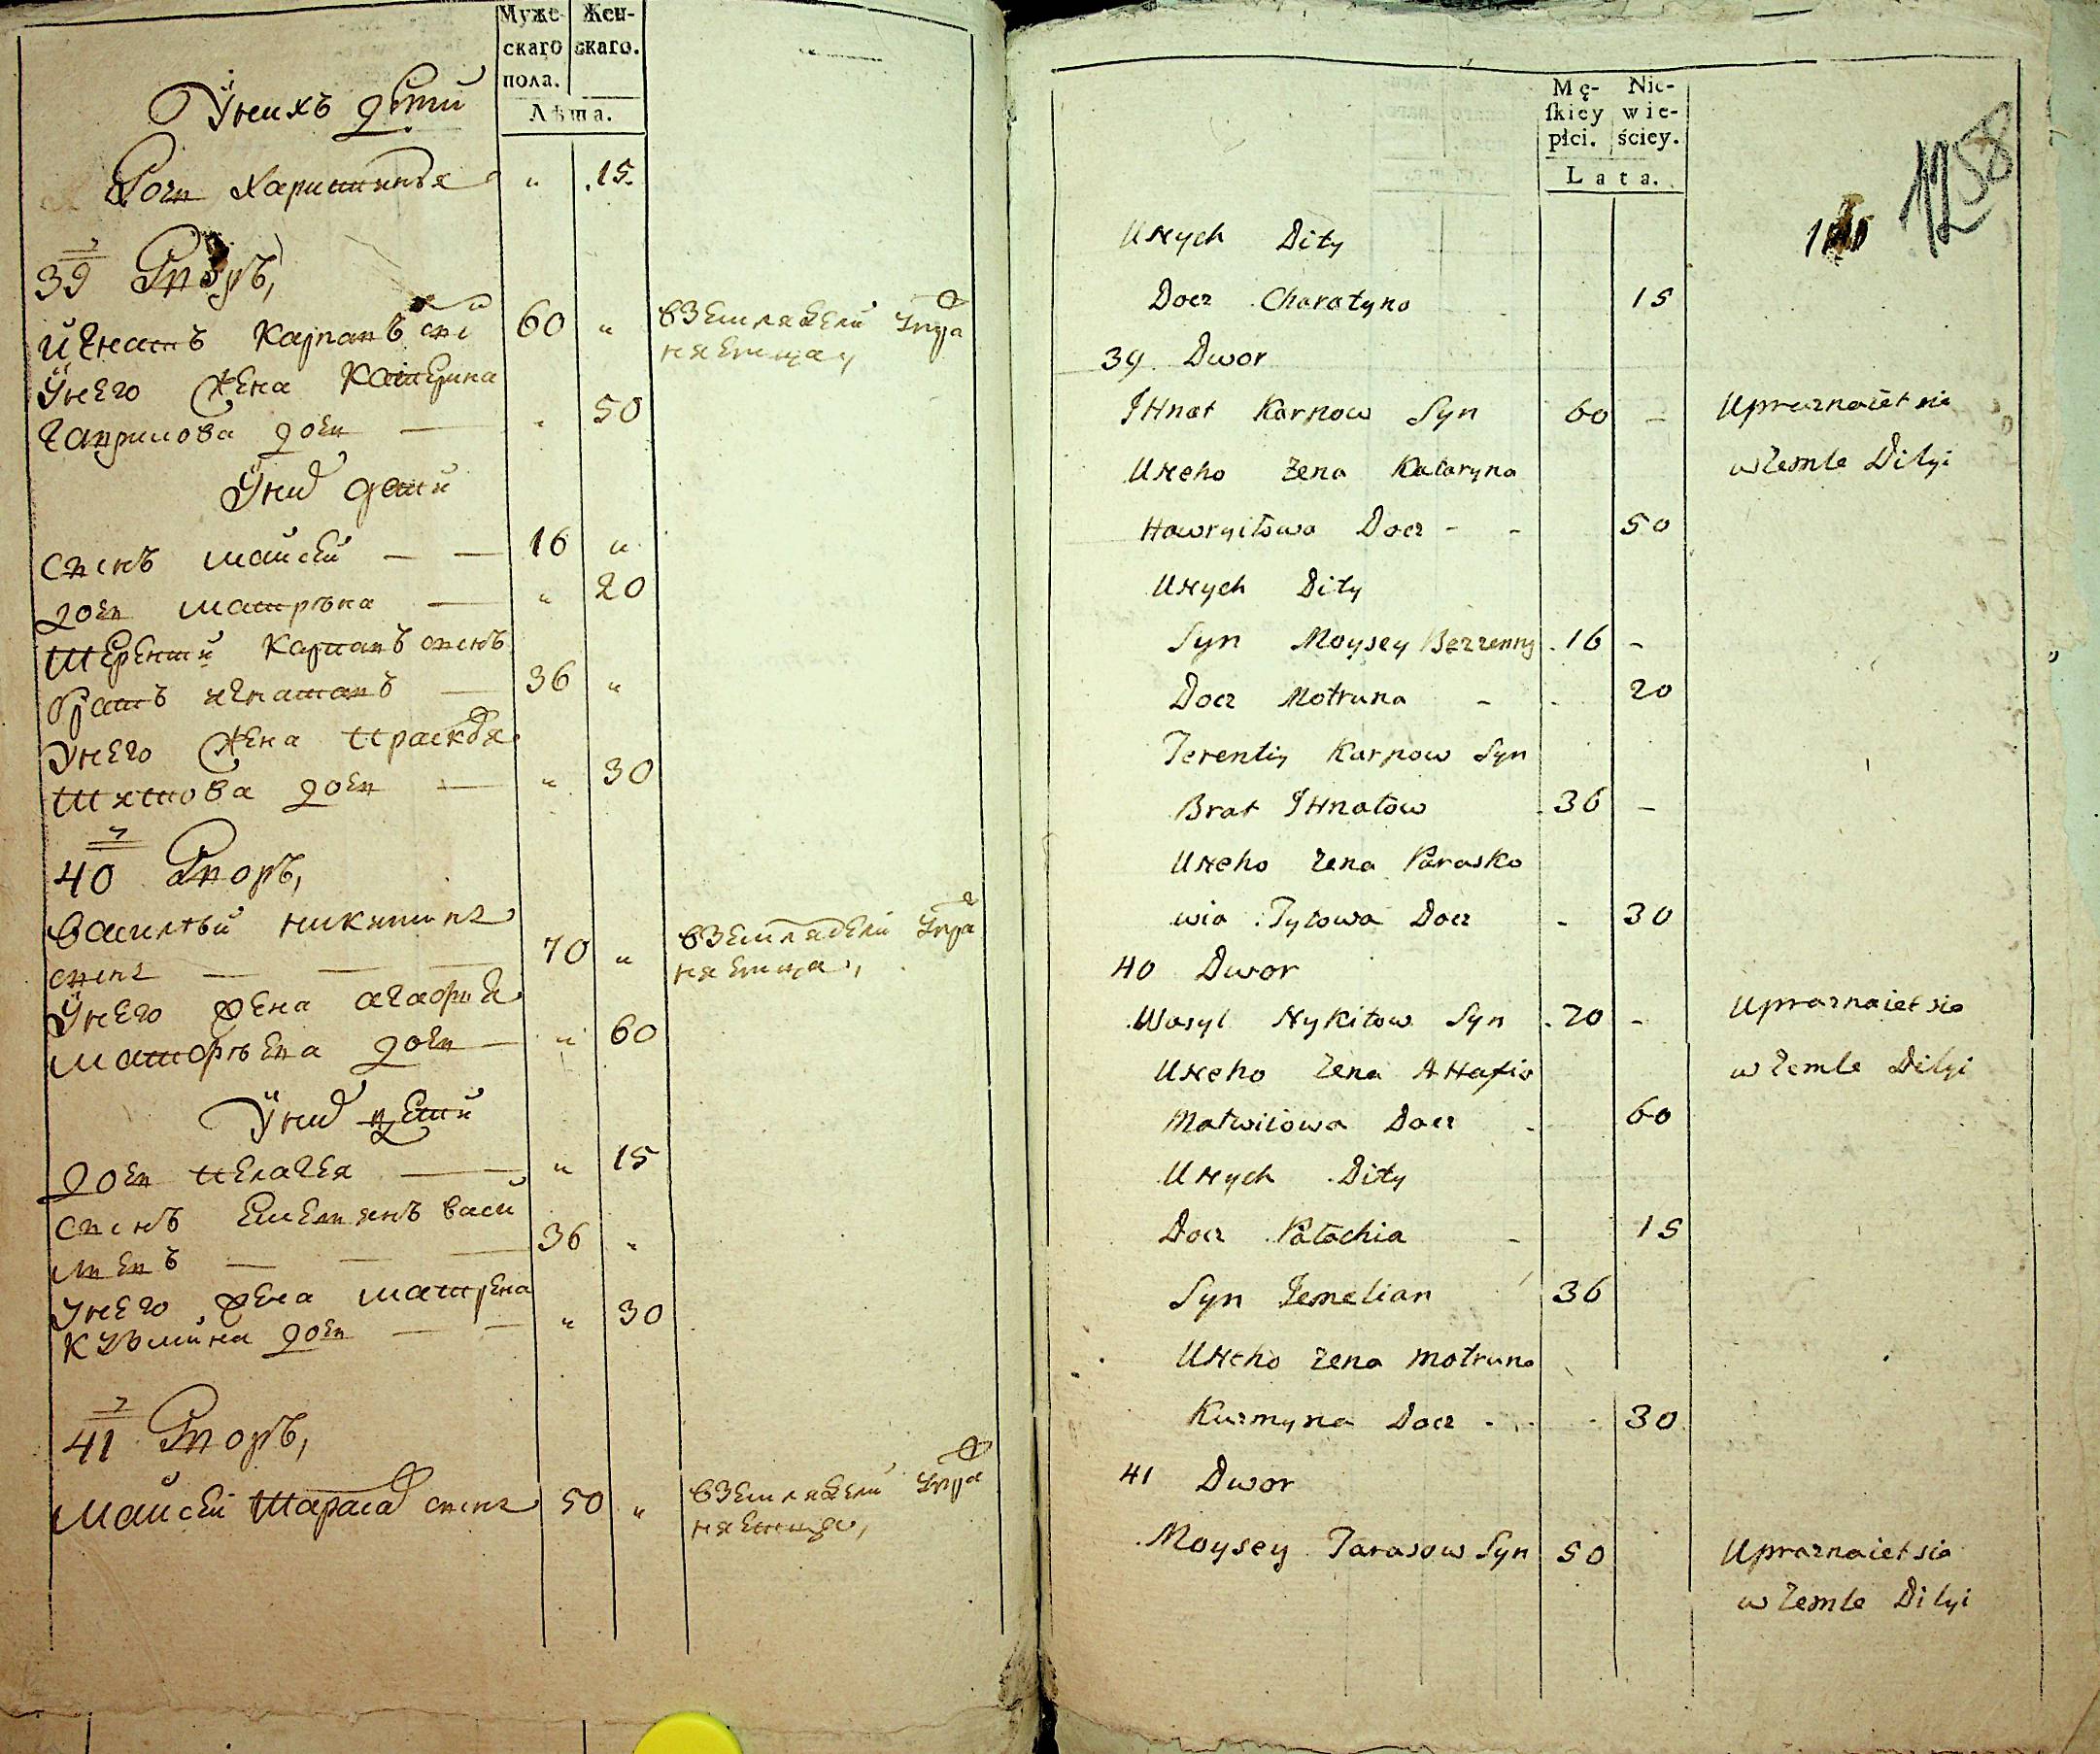 Муже- Жен-
скаго скаго.
пола.
Лѣта.
Унихъ дѣти
Дочь Харитинья " 15
39 Дворъ,
Игнатъ Карповъ снъ 60 " вземледели упра
няетца,
Унего жена Катерина
Гаврилова дочь — " 50
Уних дети
Сынъ Мойсей — — 16 "
дочь Матрына — " 20
Терентий Карповъ сынъ
братъ игнатовъ — 36 "
Унего жена Прасковя
Титова дочь — " 30
40 Дворъ,
Василѣй никитинъ
сынъ — — — 70 " вземледели упра
няетца,
Унего жена агафия
дочь — " 60
Уних дети
дочь пелагея — " 15
Сынъ Емельянъ Васи
льевъ — — — 36 "
Унего жена матрена
кузмина дочь — — " 30
41 Дворъ,
Мойсей Тарасов сынъ 50 " вземледели упра
няетца,
Mę- Nie-
ſkiey wie-
płci. ściey.
Lata.
1258
Unych Dity
Docz Charatyna 15
39 Dwor
IHnat Karpow Syn 60 – Upraznaiet sia
w Zemle Dilyi
Uneho Zena Kataryna
Hawryiłowa Docz - - 50
Unych Dity
Syn Moysey Bezzenny 16 –
Docz Motruna - - 20
Terentiy Karpow Syn
Brat IHnatow 36 –
Uneho Zena Parasko
wia Tytowa Docz - 30
40 Dwor
Wasyl Nykitow Syn 70 - Upraznaiet sia
w Zemle Dilyi
Uneho Zena AHafia
Matwiiowa Docz - 60
Unych Dity
Docz Pałachia - 15
Syn Jemelian 36
Uneho Zena Motruna
Kuzmyna Docz - - - 30
41 Dwor
Moysey Tarasow Syn 50 Upraznaiet sia
w Zemle Dilyi